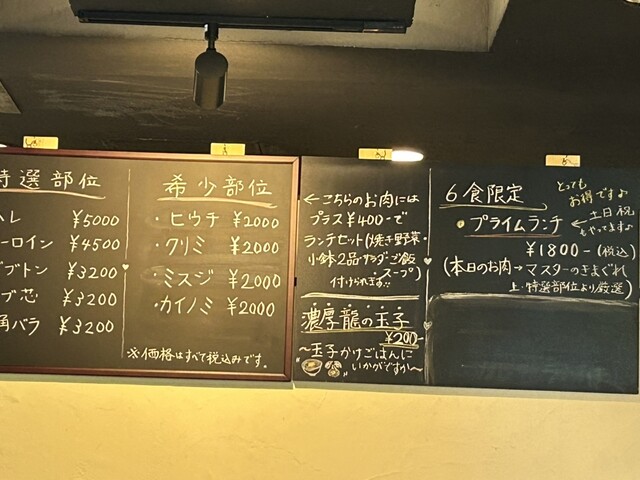 特選部位
ヒレ ¥5000
ーロイン ¥4500
ブトン ¥3200
ブ芯 ¥3200
角バラ ¥3200
希少部位
・ヒウチ ¥2000
・クリミ ¥2000
・ミスジ ¥2000
・カイノミ ¥2000
※価格はすべて税込みです。
←こちらのお肉には
プラス¥400-で
ランチセット(焼き野菜・
小鉢2品・サラダ・ご飯
・スープ)
付けられます!!
濃厚龍の玉子
¥200-
〜玉子かけごはんに
いかがですか〜
6食限定
とっても
お得ですよ
プライムランチ
←土日祝
もやってますよ
¥1800-(税込)
(本日のお肉→マスターのきまぐれ
上・特選部位より厳選)